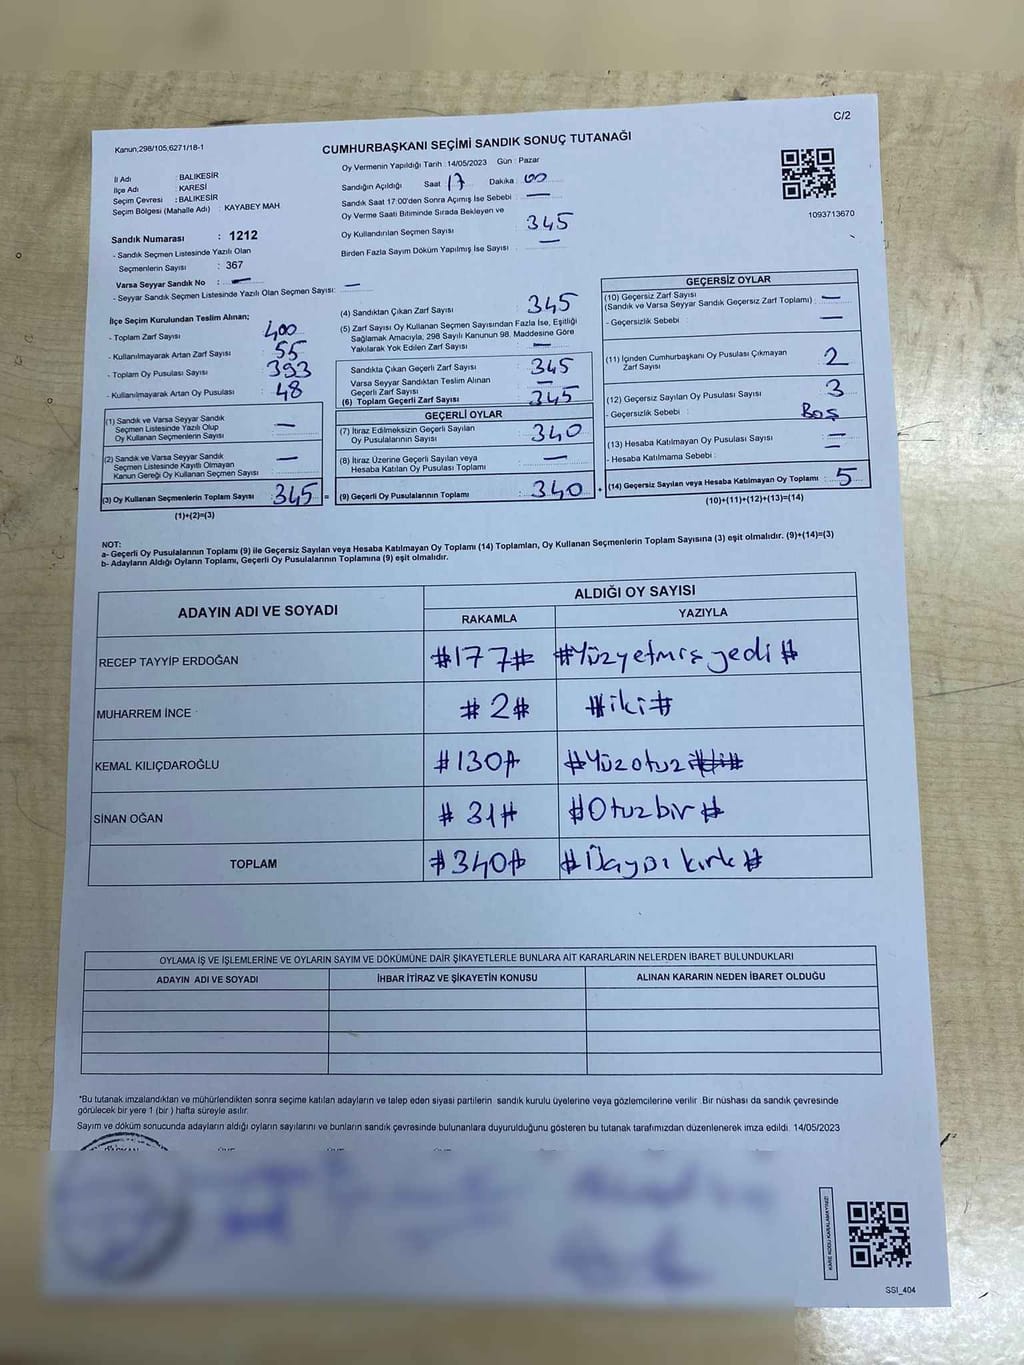 C/2
Kanun,298/105,6271/18-1
CUMHURBAŞKANI SEÇİMİ SANDIK SONUÇ TUTANAĞI
İl Adı : BALIKESİR
İlçe Adı : KARESİ
Seçim Çevresi : BALIKESİR
Seçim Bölgesi (Mahalle Adı) : KAYABEY MAH
Sandık Numarası : 1212
- Sandık Seçmen Listesinde Yazılı Olan
Seçmenlerin Sayısı : 367
Varsa Seyyar Sandık No : —
- Seyyar Sandık Seçmen Listesinde Yazılı Olan Seçmen Sayısı: —
Oy Vermenin Yapıldığı Tarih : 14/05/2023 Gün : Pazar
Sandığın Açıldığı Saat : 17 Dakika : 00
Sandık Saat 17:00'den Sonra Açımış İse Sebebi : —
Oy Verme Saati Bitiminde Sırada Bekleyen ve
Oy Kullandırılan Seçmen Sayısı : 345
Birden Fazla Sayım Döküm Yapılmış İse Sayısı : —
1093713670
İlçe Seçim Kurulundan Teslim Alınan;
- Toplam Zarf Sayısı : 400
- Kullanılmayarak Artan Zarf Sayısı : 55
- Toplam Oy Pusulası Sayısı : 393
- Kullanılmayarak Artan Oy Pusulası : 48
(1) Sandık ve Varsa Seyyar Sandık
Seçmen Listesinde Yazılı Olup
Oy Kullanan Seçmenlerin Sayısı : —
(2) Sandık ve Varsa Seyyar Sandık
Seçmen Listesinde Kayıtlı Olmayan
Kanun Gereği Oy Kullanan Seçmen Sayısı : —
(3) Oy Kullanan Seçmenlerin Toplam Sayısı : 345 =
(1)+(2)=(3)
(4) Sandıktan Çıkan Zarf Sayısı : 345
(5) Zarf Sayısı Oy Kullanan Seçmen Sayısından Fazla İse, Eşitliği
Sağlamak Amacıyla, 298 Sayılı Kanunun 98. Maddesine Göre
Yakılarak Yok Edilen Zarf Sayısı : —
Sandıkta Çıkan Geçerli Zarf Sayısı : 345
Varsa Seyyar Sandıktan Teslim Alınan
Geçerli Zarf Sayısı : —
(6) Toplam Geçerli Zarf Sayısı : 345
GEÇERLİ OYLAR
(7) İtiraz Edilmeksizin Geçerli Sayılan
Oy Pusulalarının Sayısı : 340
(8) İtiraz Üzerine Geçerli Sayılan veya
Hesaba Katılan Oy Pusulası Toplamı : —
(9) Geçerli Oy Pusulalarının Toplamı : 340 +
GEÇERSİZ OYLAR
(10) Geçersiz Zarf Sayısı
(Sandık ve Varsa Seyyar Sandık Geçersiz Zarf Toplamı) : —
- Geçersizlik Sebebi : —
(11) İçinden Cumhurbaşkanı Oy Pusulası Çıkmayan
Zarf Sayısı : 2
(12) Geçersiz Sayılan Oy Pusulası Sayısı : 3
- Geçersizlik Sebebi : Boş
(13) Hesaba Katılmayan Oy Pusulası Sayısı : —
- Hesaba Katılmama Sebebi : —
(14) Geçersiz Sayılan veya Hesaba Katılmayan Oy Toplamı : 5
(10)+(11)+(12)+(13)=(14)
NOT:
a- Geçerli Oy Pusulalarının Toplamı (9) ile Geçersiz Sayılan veya Hesaba Katılmayan Oy Toplamı (14) Toplamları, Oy Kullanan Seçmenlerin Toplam Sayısına (3) eşit olmalıdır. (9)+(14)=(3)
b- Adayların Aldığı Oyların Toplamı, Geçerli Oy Pusulalarının Toplamına (9) eşit olmalıdır.
ADAYIN ADI VE SOYADI ALDIĞI OY SAYISI
RAKAMLA YAZIYLA
RECEP TAYYİP ERDOĞAN #177# #Yüzyetmiş yedi#
MUHARREM İNCE #2# #iki#
KEMAL KILIÇDAROĞLU #130# #Yüzotuz##
SİNAN OĞAN #31# #Otuzbir#
TOPLAM #340# #Üçyüz kırk#
OYLAMA İŞ VE İŞLEMLERİNE VE OYLARIN SAYIM VE DÖKÜMÜNE DAİR ŞİKAYETLERLE BUNLARA AİT KARARLARIN NELERDEN İBARET BULUNDUKLARI
ADAYIN ADI VE SOYADI İHBAR İTİRAZ VE ŞİKAYETİN KONUSU ALINAN KARARIN NEDEN İBARET OLDUĞU
*Bu tutanak imzalandıktan ve mühürlendikten sonra seçime katılan adayların ve talep eden siyasi partilerin sandık kurulu üyelerine veya gözlemcilerine verilir .Bir nüshası da sandık çevresinde
görülecek bir yere 1 (bir ) hafta süreyle asılır.
Sayım ve döküm sonucunda adayların aldığı oyların sayılarını ve bunların sandık çevresinde bulunanlara duyurulduğunu gösteren bu tutanak tarafımızdan düzenlenerek imza edildi. 14/05/2023
KARE KODU KARALAMAYINIZ!
SSI_404